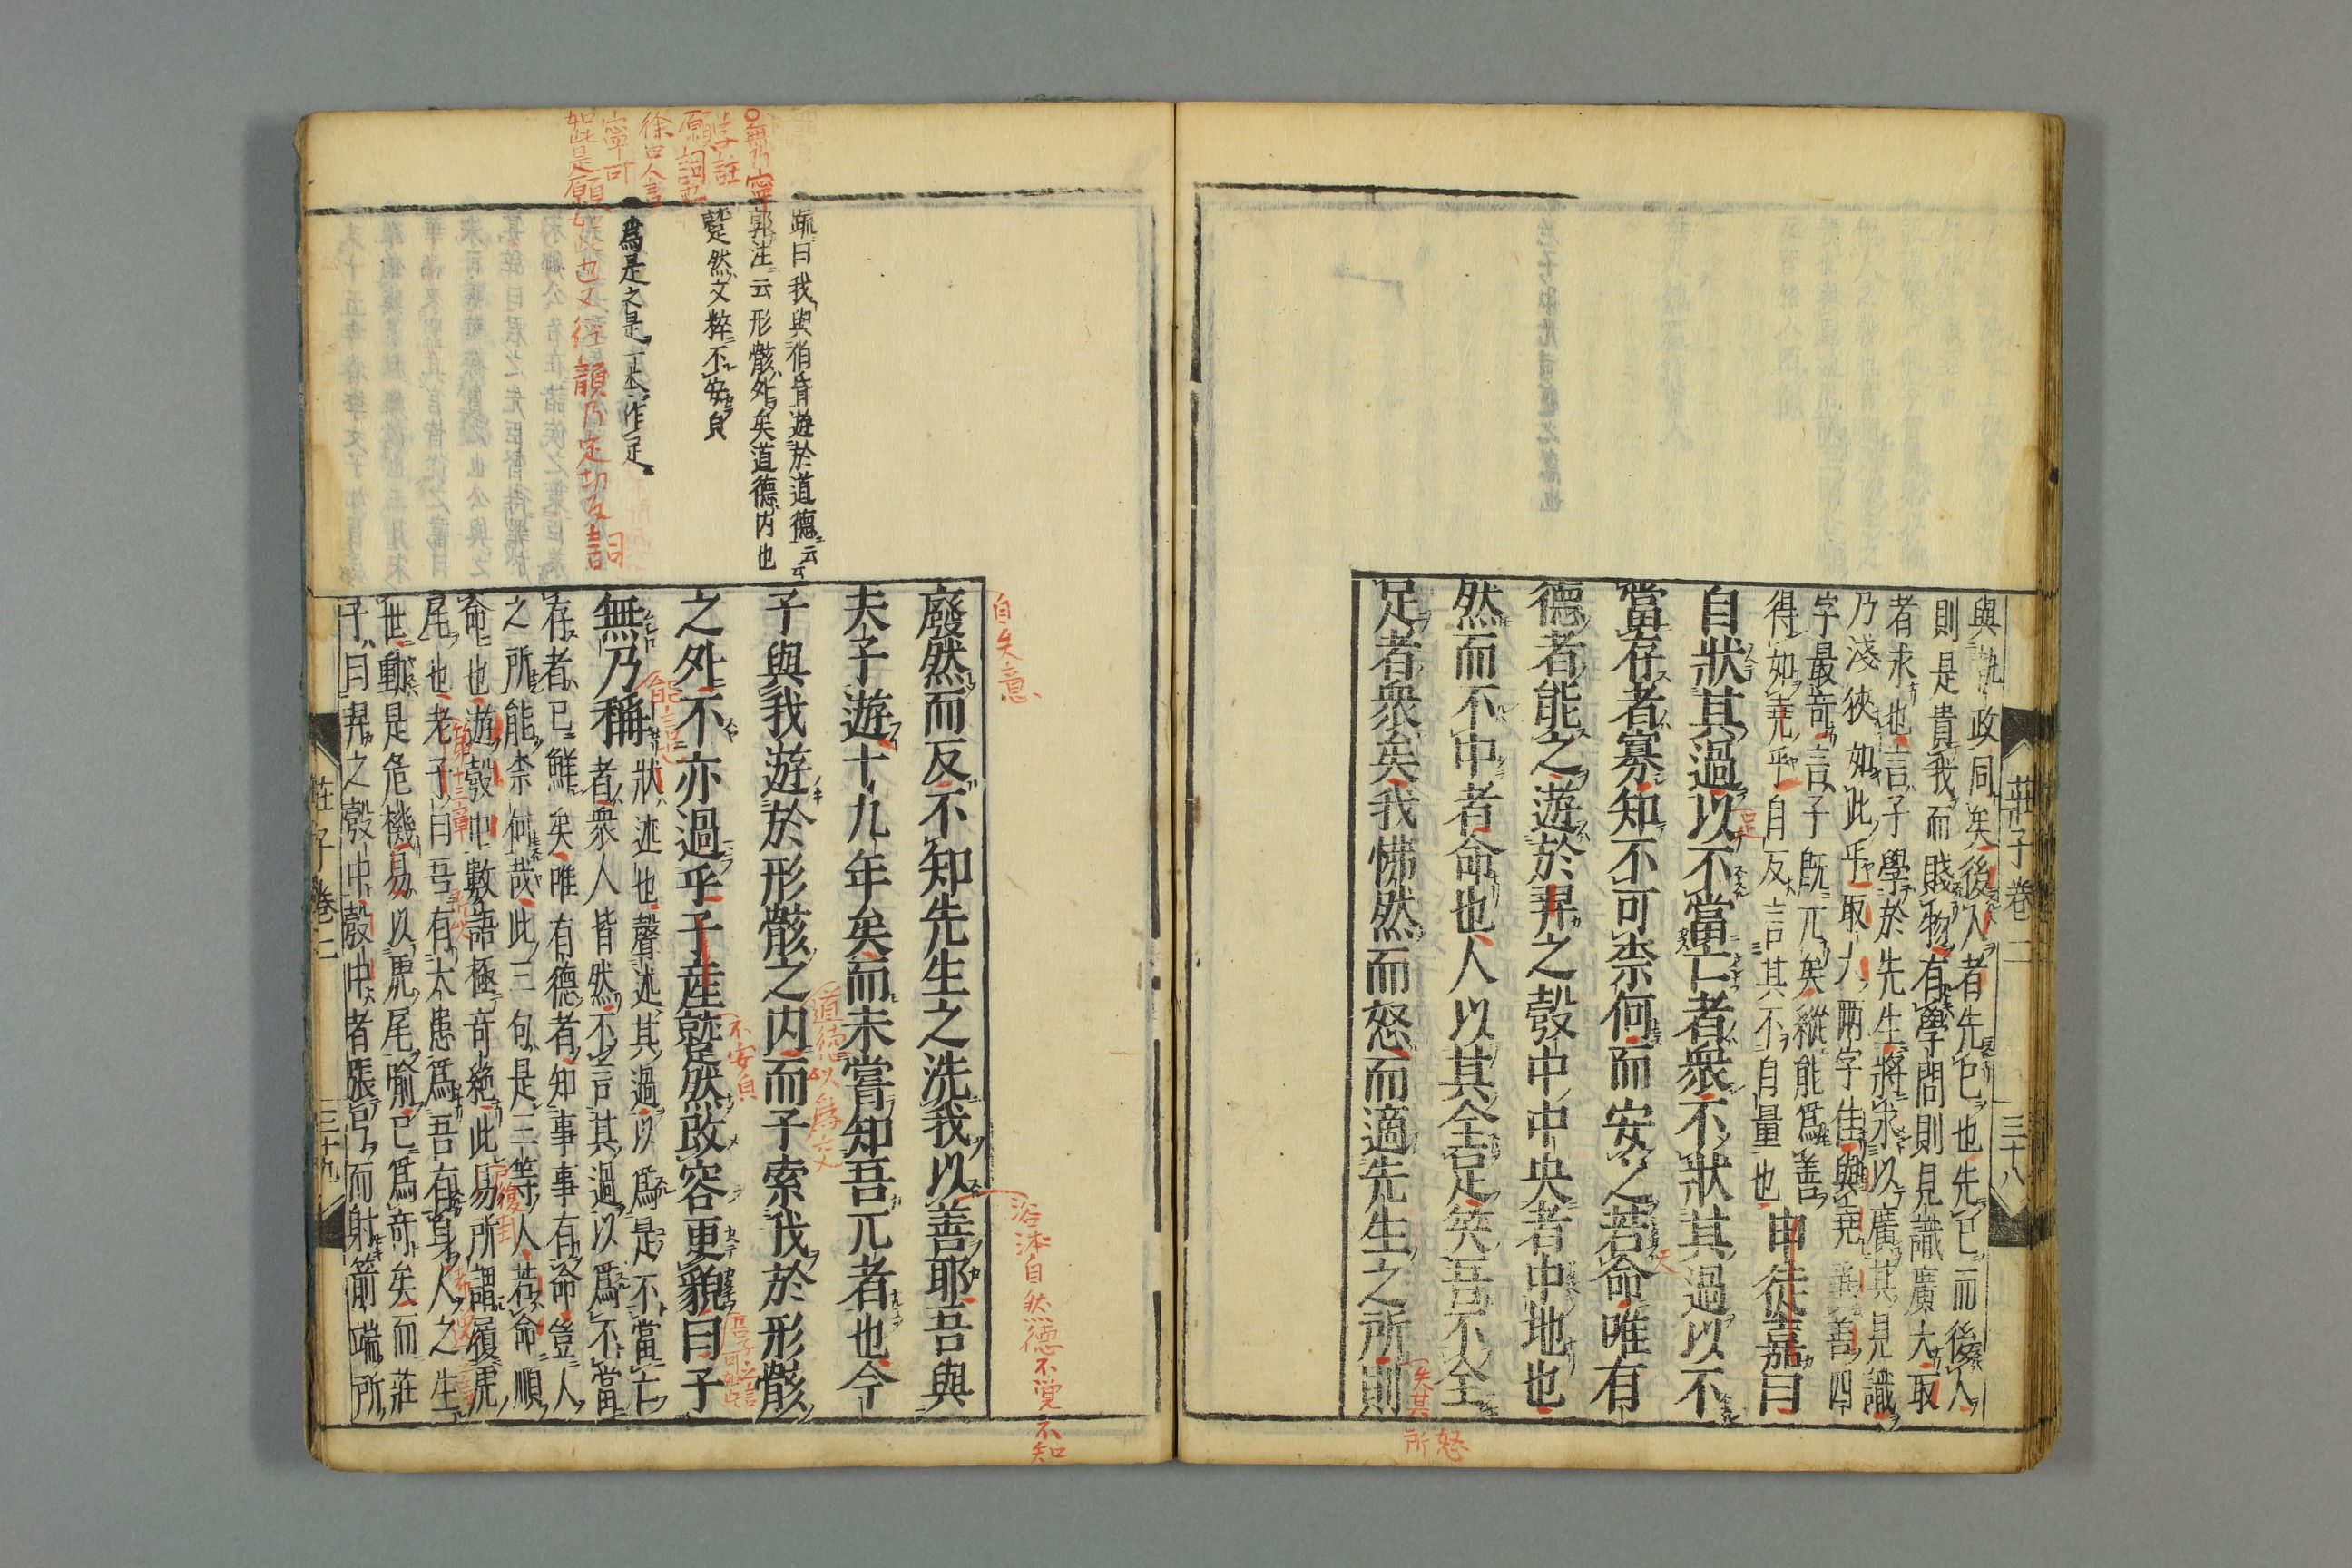 與執政同矣後人者先己也先己而後人
則是貴我而賤物有學問則見識廣大取
者求也言子學於先生將求以廣其見識
乃淺狹如此乎取大兩字佳與堯爭善四
字最奇言子既兀矣縱能爲善
得如堯乎自反言其不自量也申徒嘉曰
自狀其過以不當亡者衆不狀其過以不
當存者寡知不可柰何而安之若命唯有
德者能之遊於羿之彀中中央者中地也
然而不中者命也人以其全足笑吾不全
足者衆矣我怫然而怒而適先生之所則
莊子卷二 三十八
自失意
廢然而反不知先生之洗我以善耶吾與
夫子遊十九年矣而未嘗知吾兀者也今
子與我遊於形骸之内而子索我於形骸
之外不亦過乎子產蹵然改容更貌曰子
無乃稱
狀述也聲述其過以爲是不當亡
者衆人皆然不言其過以爲不當
存者已鮮矣唯有德者知事事有命豈人
之所能柰何哉此三句是三等人若命順
命也遊彀中數語極奇絶此易所謂履虎
尾也老子曰吾有大患爲吾有身人之生
世動是危機易以虎尾喻己爲奇矣而莊
子曰羿之彀中彀中者張弓而射箭端所
莊子卷二 三十九
疏曰我與伯昏遊於道德云云
郭注云形骸外矣道德内也
蹵然文粹不安貟
爲是之是一本作足
無乃寧
願詞也
徐曰人言
寧可
如此是願
不安貟
道德以爲友
浴沐自然德不覚不知
第十三章
失其所怒